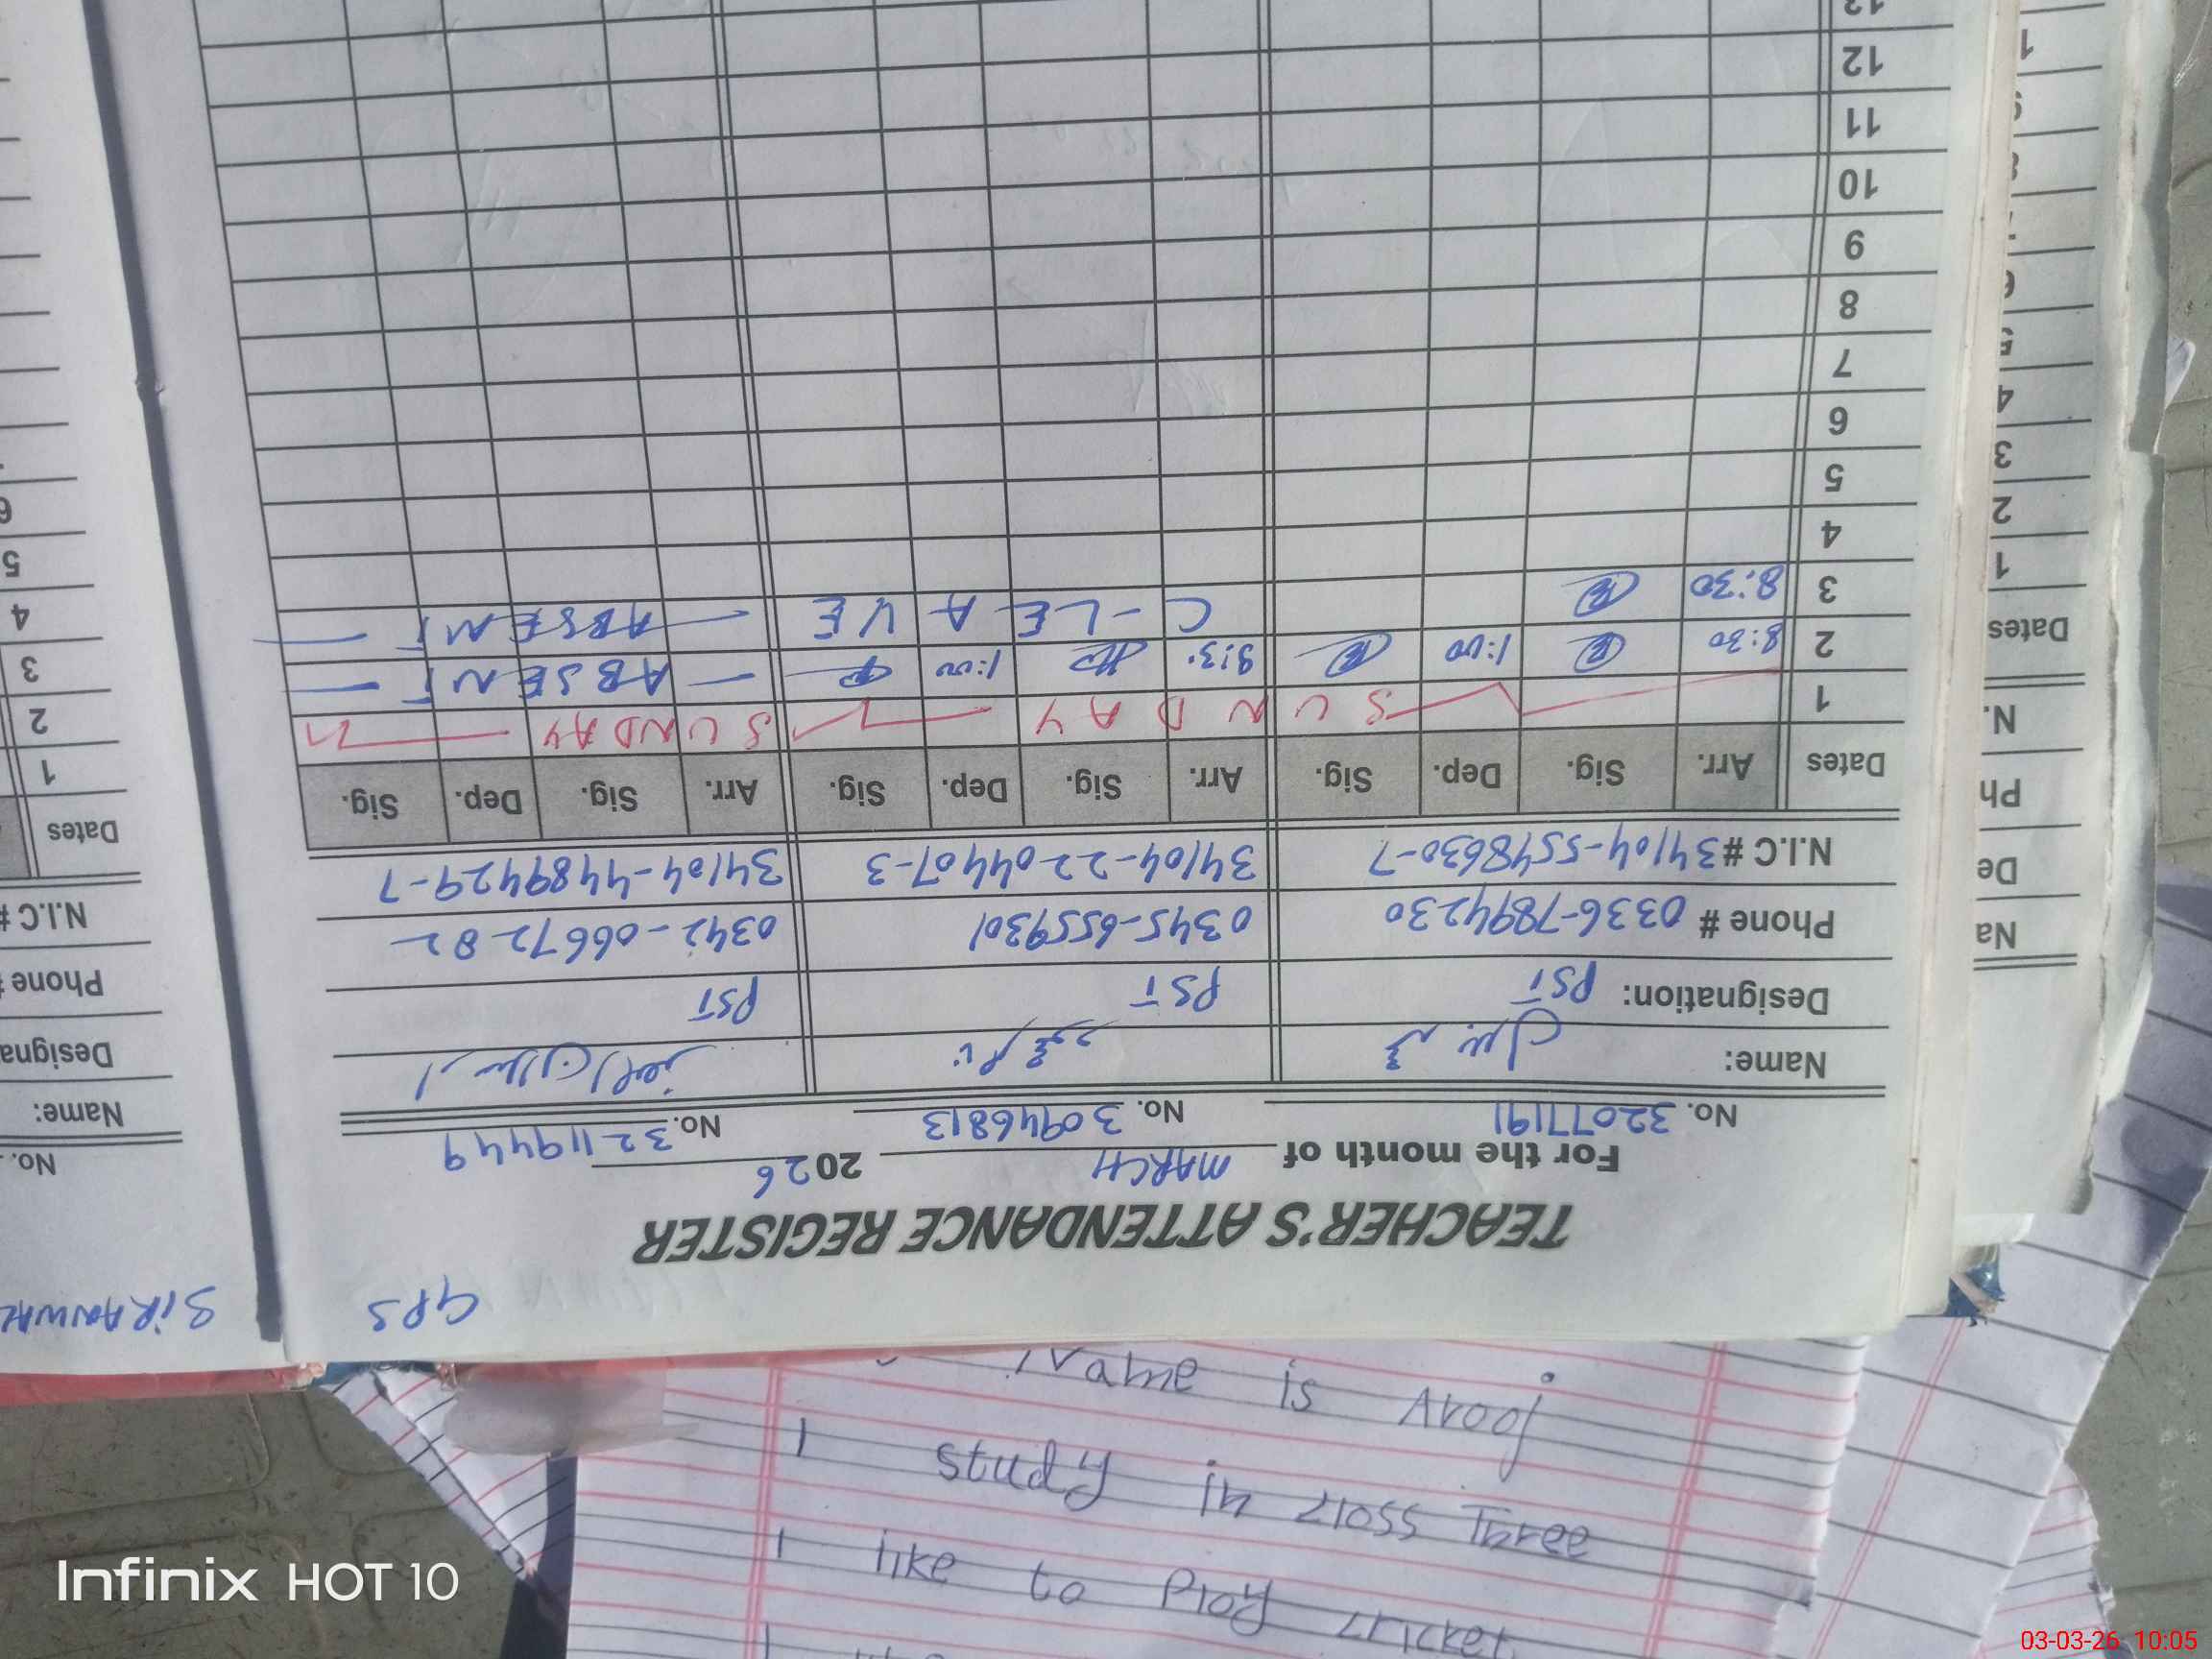 GPS
SIR ANWAR
TEACHER'S ATTENDANCE REGISTER
For the month of MARCH 2026
No. 32077191 No. 30946813 No. 32119449
Name:
Designation: PST PST PST
Phone # 0336-7894230 0345-6559301 0342-0667282
N.I.C # 34104-5548630-7 34104-2204407-3 34104-4489429-7
Dates Arr. Sig. Dep. Sig. Arr. Sig. Dep. Sig. Arr. Sig. Dep. Sig.
1 SUNDAY SUNDAY
2 8:30 1:00 1:00 ABSENT
3 8:30 C-LEAVE ABSENT
4
5
6
7
8
9
10
11
12
13
No.
Name:
Designa
Phone #
N.I.C #
Dates
1
2
3
4
5
6
Na
De
Ph
N.
Dates
1
2
3
4
5
6
Name is
I study in Three
I like to Play cricket
Infinix HOT 10
03-03-26 10:05